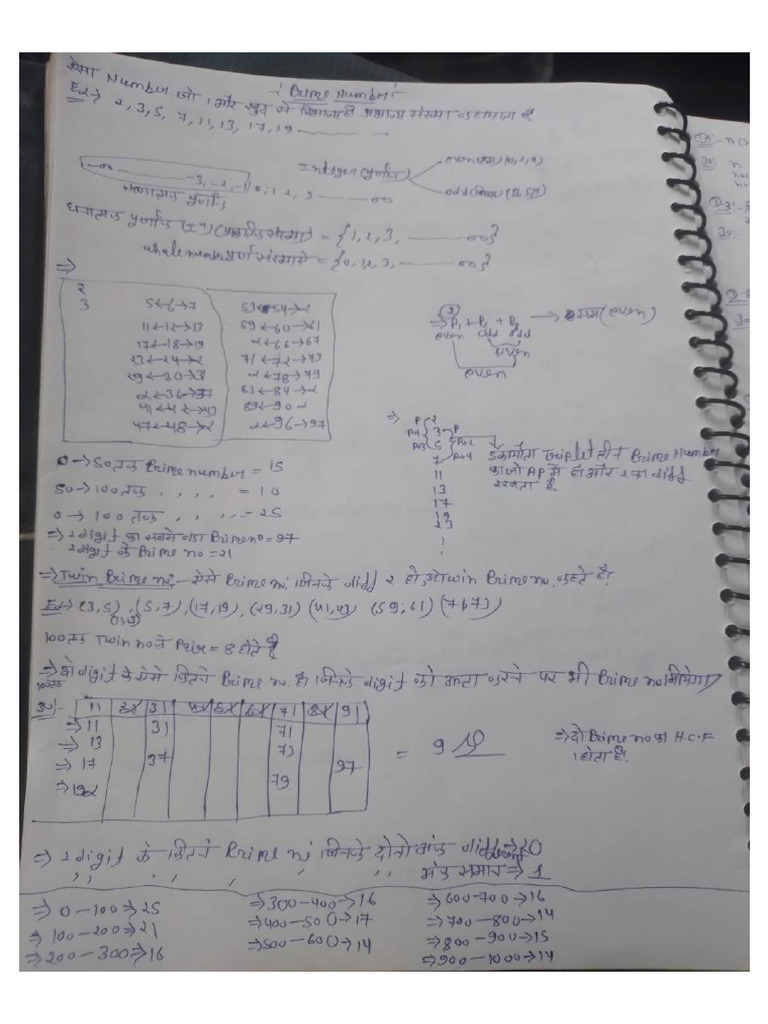 : Prime Number :-
ऐसा Number जो 1 और खुद से विभाज्य हो अभाज्य संख्या कहलाता है
Ex→ 2, 3, 5, 7, 11, 13, 17, 19 ------
-∞ -------- -3, -2, -1, 0, 1, 2, 3 ------ ∞
ऋणात्मक पूर्णांक
Integer (पूर्णांक)
even
odd
धनात्मक पूर्णांक (I⁺) = {1, 2, 3, ------ ∞}
whole number पूर्ण संख्याये = {0, 1, 2, 3, ------ ∞}
⇒
2
3
5←6→7
11←12→13
17←18→19
23←24→x
29←30→31
x←36→37
41←42→43
47←48→x
53←54→x
59←60→61
x←66→67
71←72→73
x←78→79
83←84→x
89←90 x
x←96→97
⇒ P₁ + P₂ + P₃ → सम (even)
even odd odd
even
even
⇒
2
3
5
7
11
13
17
19
23
P
P+2
P+4
Triplet तीन Prime Number
का जो AP में हो और 2 का diff
रखता है
0→50 तक Prime number = 15
50→100 तक ,, ,, = 10
0→100 तक ,, ,, = 25
⇒ 2 digit का सबसे बड़ा Prime no = 97
2 digit के Prime no = 21
⇒ Twin Prime no:- ऐसे Prime no. जिनके diff 2 हो उसे Twin Prime no. कहते है।
Ex→ (3,5), (5,7), (17,19), (29,31) (41,43) (59,61) (71,73)
(11,13)
100 तक Twin no के Pair = 8 होते है
⇒ दो digit के ऐसे कितने Prime no. है जिनके digit को उल्टा करने पर भी Prime no मिलेगा
100 तक
उ०:-
11 31 71 91
⇒ 11 31 71
⇒ 13 73
⇒ 17 37 97
⇒ 19x 79
= 9
⇒ दो Prime no का H.C.F
1 होता है.
⇒ 2 digit के कितने Prime no जिनके दोनो अंक different ⇒ 20
,, ,, ,, ,, ,, अंक समान → 1
⇒ 0-100 ⇒ 25
⇒ 100-200 ⇒ 21
⇒ 200-300 ⇒ 16
⇒ 300-400 → 16
⇒ 400-500 → 17
⇒ 500-600 → 14
⇒ 600-700 → 16
⇒ 700-800 → 14
⇒ 800-900 → 15
⇒ 900-1000 → 14